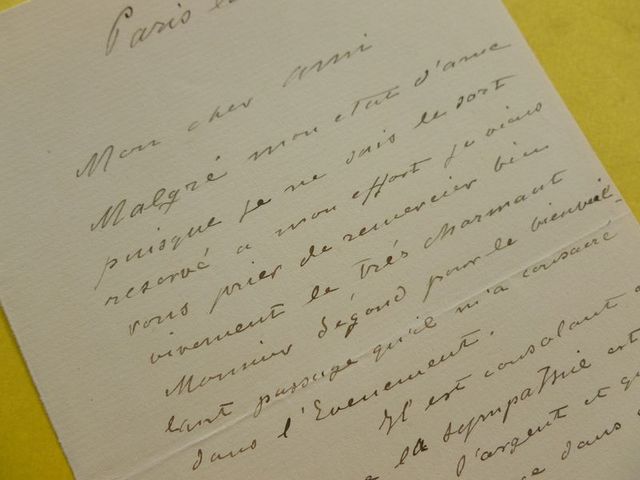 Paris le
Mon cher ami
Malgré mon état d'ame
puisque je ne sais le sort
reservé a mon effort je viens
vous prier de remercier bien
vivement le trés charmant
Monsieur Ségond pour le bienveil-
lant passage qu'il m'a consacré
dans l'Evenement.
Il est consolant
la sympathie est
l'argent et
dans